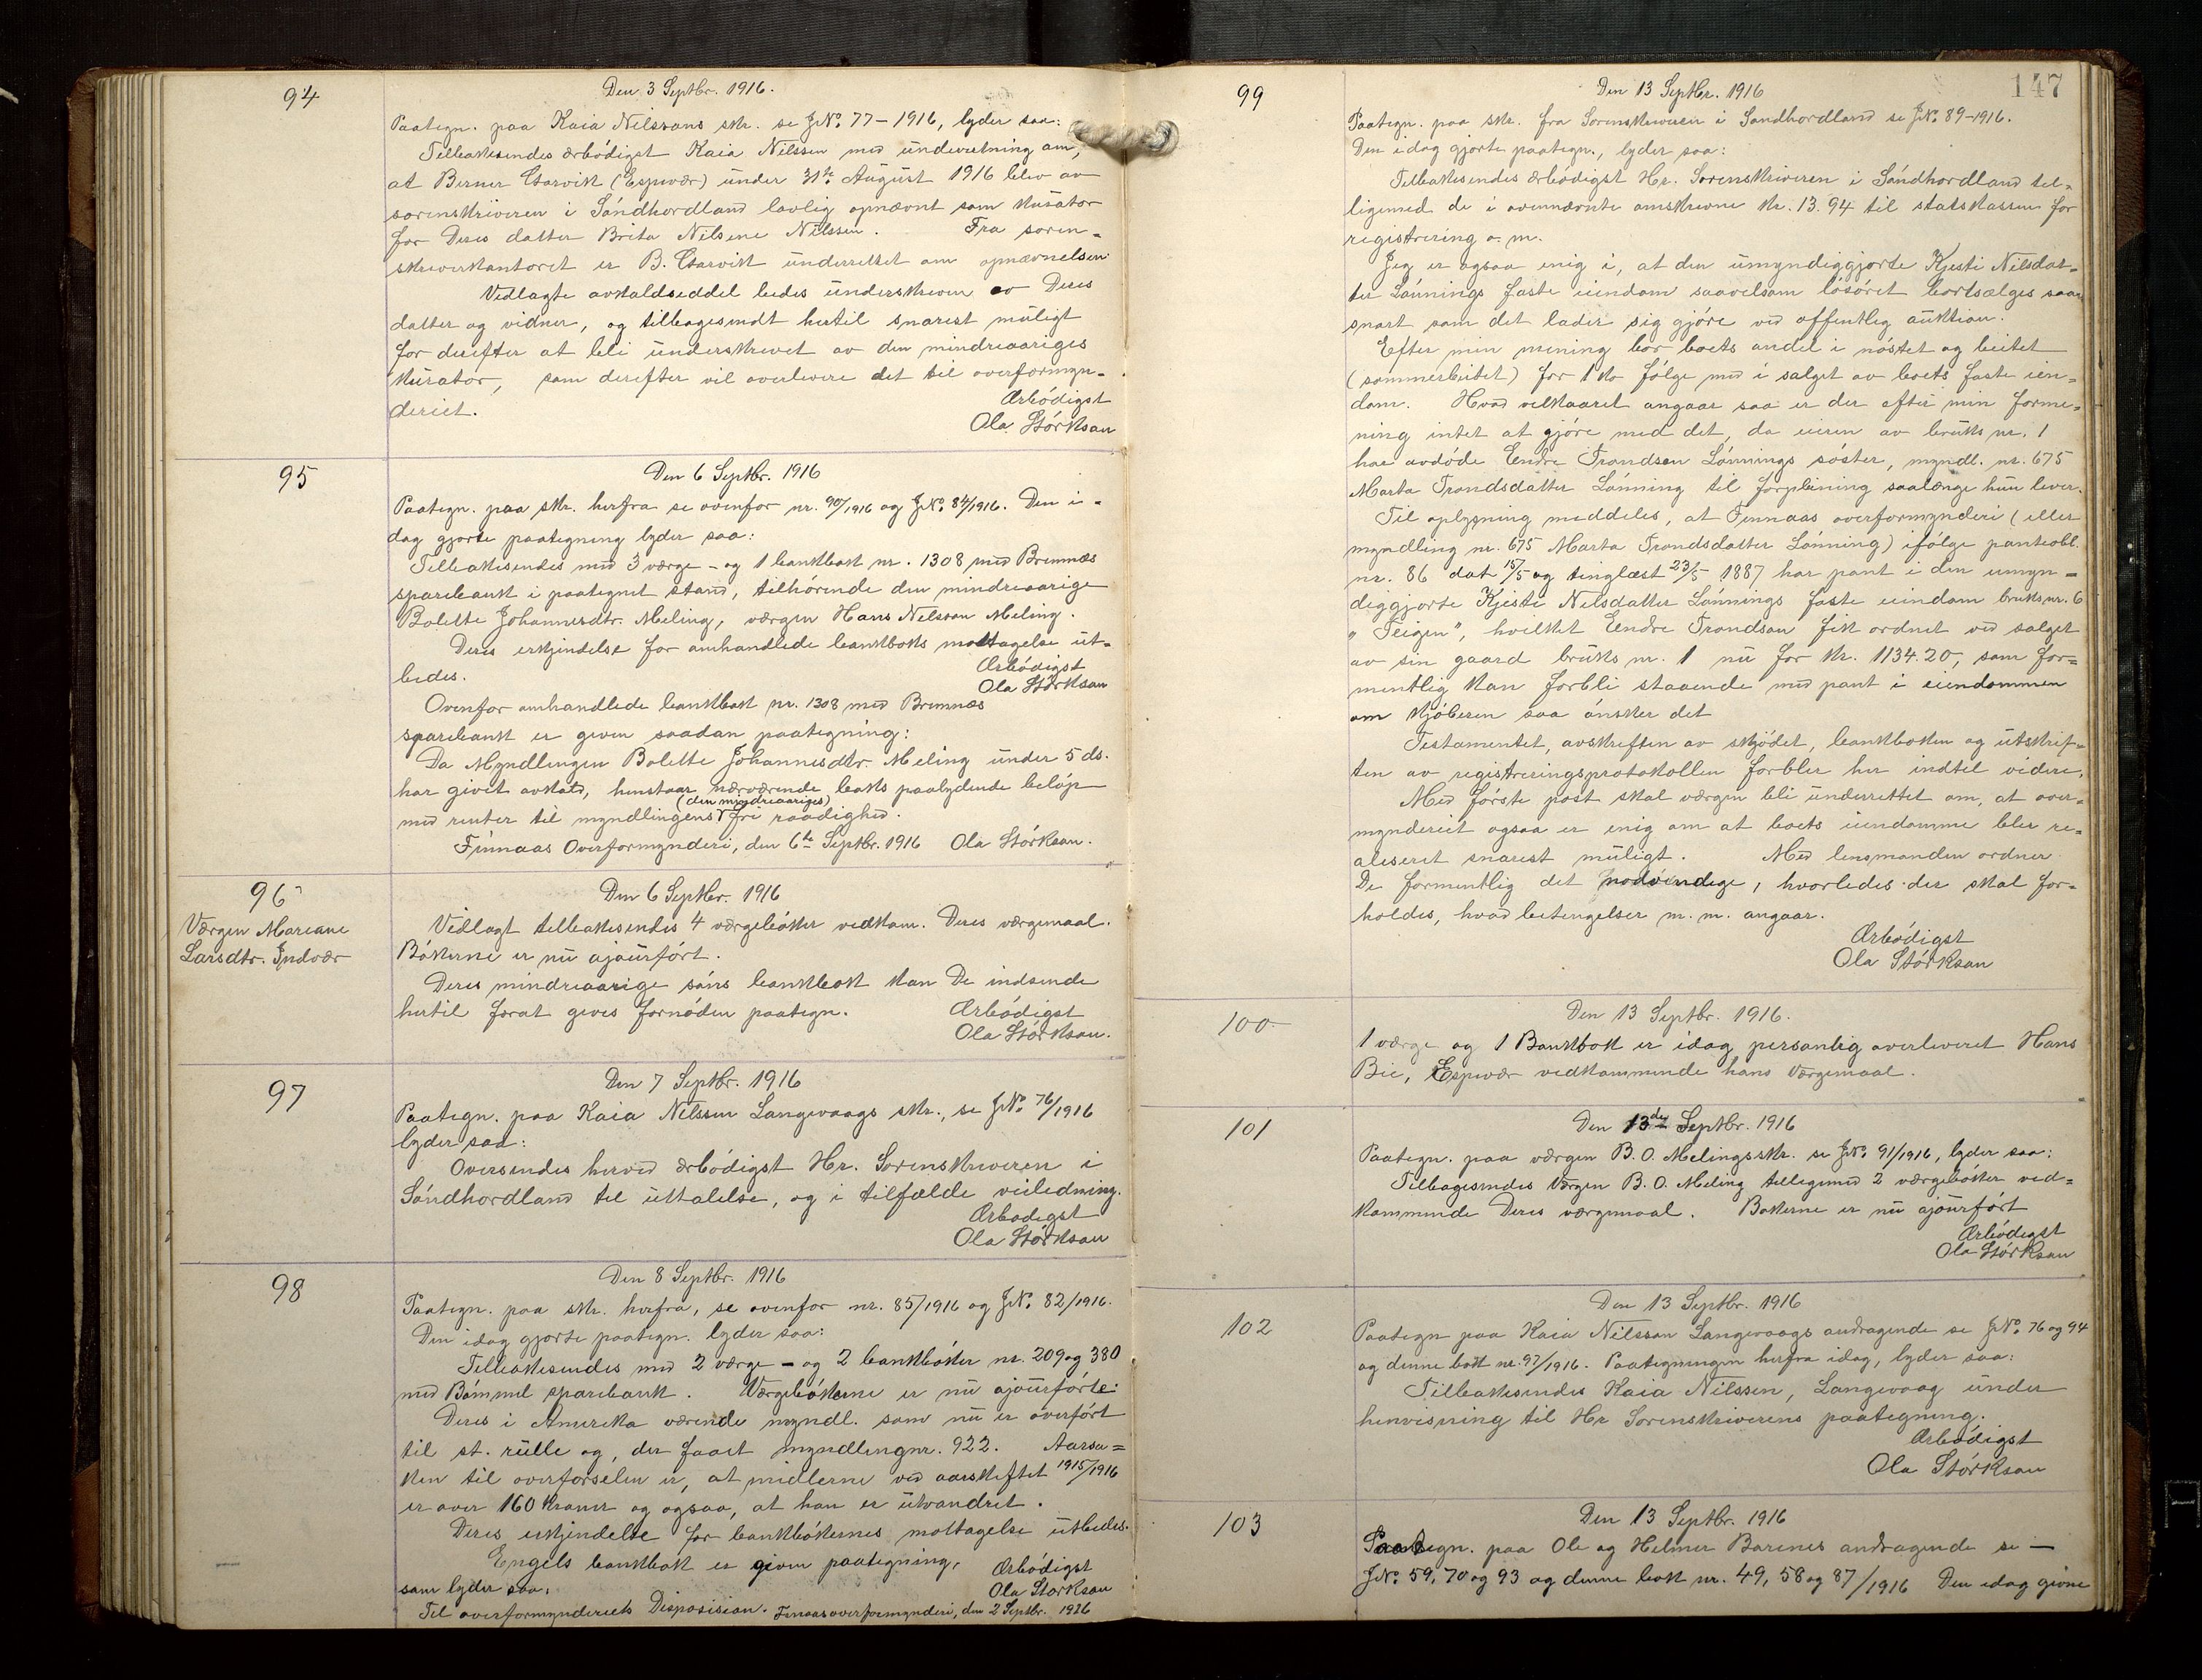 94
Den 3 Septbr. 1916.
Paategn. paa Kaia Nilssons skr. se J.No. 77-1916, lyder saa:
Tilbakesendes ærbödigst Kaia Nilssen med underretning am,
at Berner (Espevær) under 31te August 1916 blev av
sorenskriveren i Söndhordland lovlig opnævnt som kurator
for Deres datter Brita Nilsine Nilssen. Fra soren-
skriverkontoret er B. underrettet om opnævnelsen
Vedlagte avkaldseddel bedes underskreven av Deres
datter og vidner, og tilbagesendt hertil snarest muligt
for derefter at bli underskrevet av den mindreaariges
kurator, som derefter vil overlevere det til overformyn-
deriet.
Ærbödigst
Ola Störkson
95
Den 6 Septbr. 1916
Paategn. paa skr. herfra se ovenfor nr. 90/1916 og J.No. 84/1916. Den i-
dag gjorte paategning lyder saa:
Tilbakesendes med 3 værge- og 1 bankbok nr. 1308 med Bremnæs
sparebank i paategnet stand, tilhörende den mindreaarige
Bolette Johannesdtr. Meling, værgen Hans Nelsson Meling.
Deres erkjendelse for omhandlede bankboks mottagelse ut-
bedes.
Ærbödigst
Ola Störkson
Ovenfor omhandlede bankbok nr. 1308 med Bremnæs
sparebank er given saadan paategning:
Da Myndlingen Bolette Johannesdtr. Meling under 5 ds.
har givet avkald, henstaar nærværende boks paalydende belöp
(den mindreaariges)
med renter til myndlingens fri raadighed.
Finnaas Overformynderi, den 6te Septbr. 1916 Ola Störkson.
96
Værgen Mariane
Larsdtr. Indvær
Den 6 Septbr. 1916
Vedlagt tilbakesendes 4 værgeböker vedkom. Deres værgemaal.
Bökerne er nu ajourfört.
Deres mindreaarige söns bankbok kan De indsende
hertil forat gives fornöden paategn.
Ærbödigst
Ola Störkson.
97
Den 7 Septbr. 1916
Paategn. paa Kaia Nilssen Langevaags skr., se J.No. 76/1916
lyder saa:
Oversendes herved ærbödigst Hr. Sorenskriveren i
Söndhordland til uttalelse, og i tilfælde veiledning.
Ærbodigst
Ola Störkson
98
Den 8 Septbr. 1916
Paategn. paa skr. herfra, se ovenfor nr. 85/1916 og J.No. 82/1916.
Den idag gjorte paategn. lyder saa:
Tilbakesendes med 2 værge- og 2 bankböker nr. 209 og 380
med Bömmel sparebank. Værgebökerne er nu ajourförte.
Deres i Amerika værende myndl. som nu er overfört
til st. rulle og, der faaet myndlingnr. 922. Aarsa=
ken til overforselen er, at midlerne ved aarskiftet 1915/1916
er over 160 Kroner og ogsaa, at han er utvandret.
Deres erkjendelse for bankbökernes mottagelse utbedes.
Engels bankbok er given paategning,
som lyder saa:
Ærbödigst
Ola Storkson
Til overformynderiets Disposision. Finaas overformynderi, den 2 Septbr. 1916
147
99
Den 13 Septbr. 1916
Paategn. paa skr. fra Sorenskriveren i Sondhordland se J.No. 89-1916.
Den idag gjorte paategn., lyder saa:
Tilbakesendes ærbödigst Hr. Sorenskriveren i Söndhordland til=
ligemed de i ovennævnte omskrevne kr. 13.94 til statskassen for
registrering o. m.
Jeg er ogsaa enig i, at den umyndiggjorte Kjesti Nilsdat-
ter Lönnings faste eiendom saavelsom lösöret bortsælges saa
snart som det lader sig gjöre ved offentlig auktion.
Efter min mening bör boets andel i nöstet og beitet
(sommerbeitet) for 1 ko fölge med i salget av boets faste eien=
dom. Hvad velkaaret angaar saa er der efter min forme-
ning intet at gjöre med det, da eieren av bruks nr. 1
har avdöde Endre Trondsen Lönnings söster, myndl. nr. 675
Marta Trondsdatter Lönning til forpleining saalænge hun lever.
Til oplysning meddeles, at Finnaas overformynderi (eller
myndling nr. 675 Marta Trondsdatter Lönning) ifölge panteobl.
nr. 86 dat 15/5 og tinglæst 23/5 1887 har pant i den umyn-
diggjorte Kjesti Nelsdatter Lönnings faste eiendom bruksnr. 6
"Teigen", hvilket Endre Trondson fik ordnet ved salget
av sin gaard bruks nr. 1 nu for kr. 1134.20, som for=
mentlig kan forbli staaende med pant i eiendommen
om kjöberen saa önsker det
Testamentet, avskriften av skjödet, bankboken og utskrif=
ten av registreringsprotokollen forbler her indtil videre.
Med förste post skal værgen bli underrettet om, at over-
mynderiet ogsaa er enig om at boets eiendomme bler re=
aliseret snarest muligt. Med lensmanden ordner
De formentlig det nodvendige, hvorledes der skal for=
holdes, hvad betingelser m. m. angaar.
Ærbödigst
Ola Störkson
100
Den 13 Septbr. 1916.
1 værge og 1 Bankbok er idag personlig overleveret Hans
Bie, Espevær vedkommende hans Værgemaal.
101
Den 13de Septbr. 1916
Paategn. paa værgen B. O. Melings skr. se J.No. 91/1916, lyder saa:
Tilbagesendes Værgen B. O. Meling tilligemed 2 værgeböker ved=
kommende Deres værgemaal. Bokerne er nu ajourfört
Ærbödigst
Ola Störkson
102
Den 13 Septbr. 1916
Paategn paa Kaia Nilsson Langevaags andragende se J.No. 76 og 94
og denne bok nr. 97/1916. Paategningen herfra idag, lyder saa:
Tilbakesendes Kaia Nilssen, Langevaag under
henvisning til Hr Sorenskriverens paategning.
Ærbödigst
Ola Störkson
103
Den 13 Septbr. 1916
Paategn. paa Ole og Helmer Barenes andragende se -
J.No. 59, 70 og 93 og denne bok nr. 49, 58 og 87/1916 Den idag givne